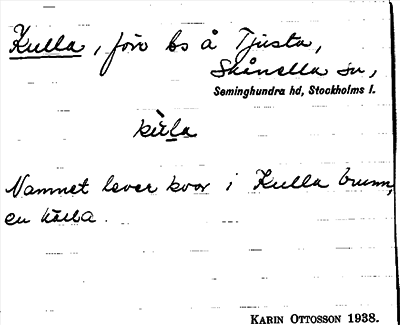 Kulla, förr bs å Tjusta,
Skånella sn,
Seminghundra hd, Stockholms l.
kùla
Namnet lever kvar i Kulla brunn,
en källa.
KARIN OTTOSSON 1938.